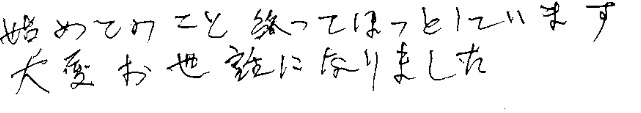 始めてのこと終ってほっとしています
大変お世話になりました